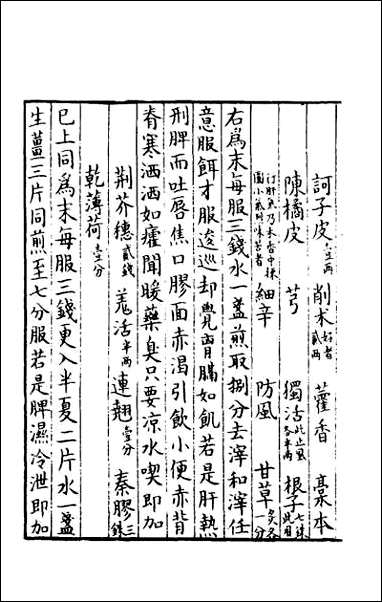 訶子皮壹两 削术好者貳两 藿香 藁本
陳橘皮 芎 獨活 根子
細辛 防風 甘草炙各一分
右爲末每服三錢水一盞煎取捌分去滓和滓任
意服餌才服逡巡却覺胷膈如飢若是肝熱
刑脾而吐唇焦口膠面赤渴引飲小便赤背
脊寒洒洒如瘧聞暖藥臭只要凉水喫即加
荆芥穗貳錢 羌活半两 連翹壹分 秦膠三銖
乾薄荷壹分
巳上同爲末每服三錢更入半夏二片水一盞
生薑三片同煎至七分服若是脾濕冷泄即加